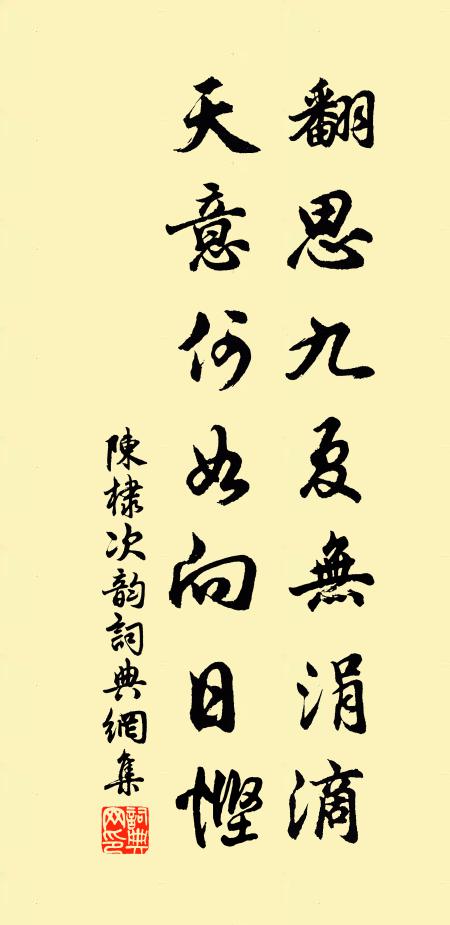 翻思九夏無涓滴
天意何如向日慳
陳棣次韵詞典網集
詞典网印